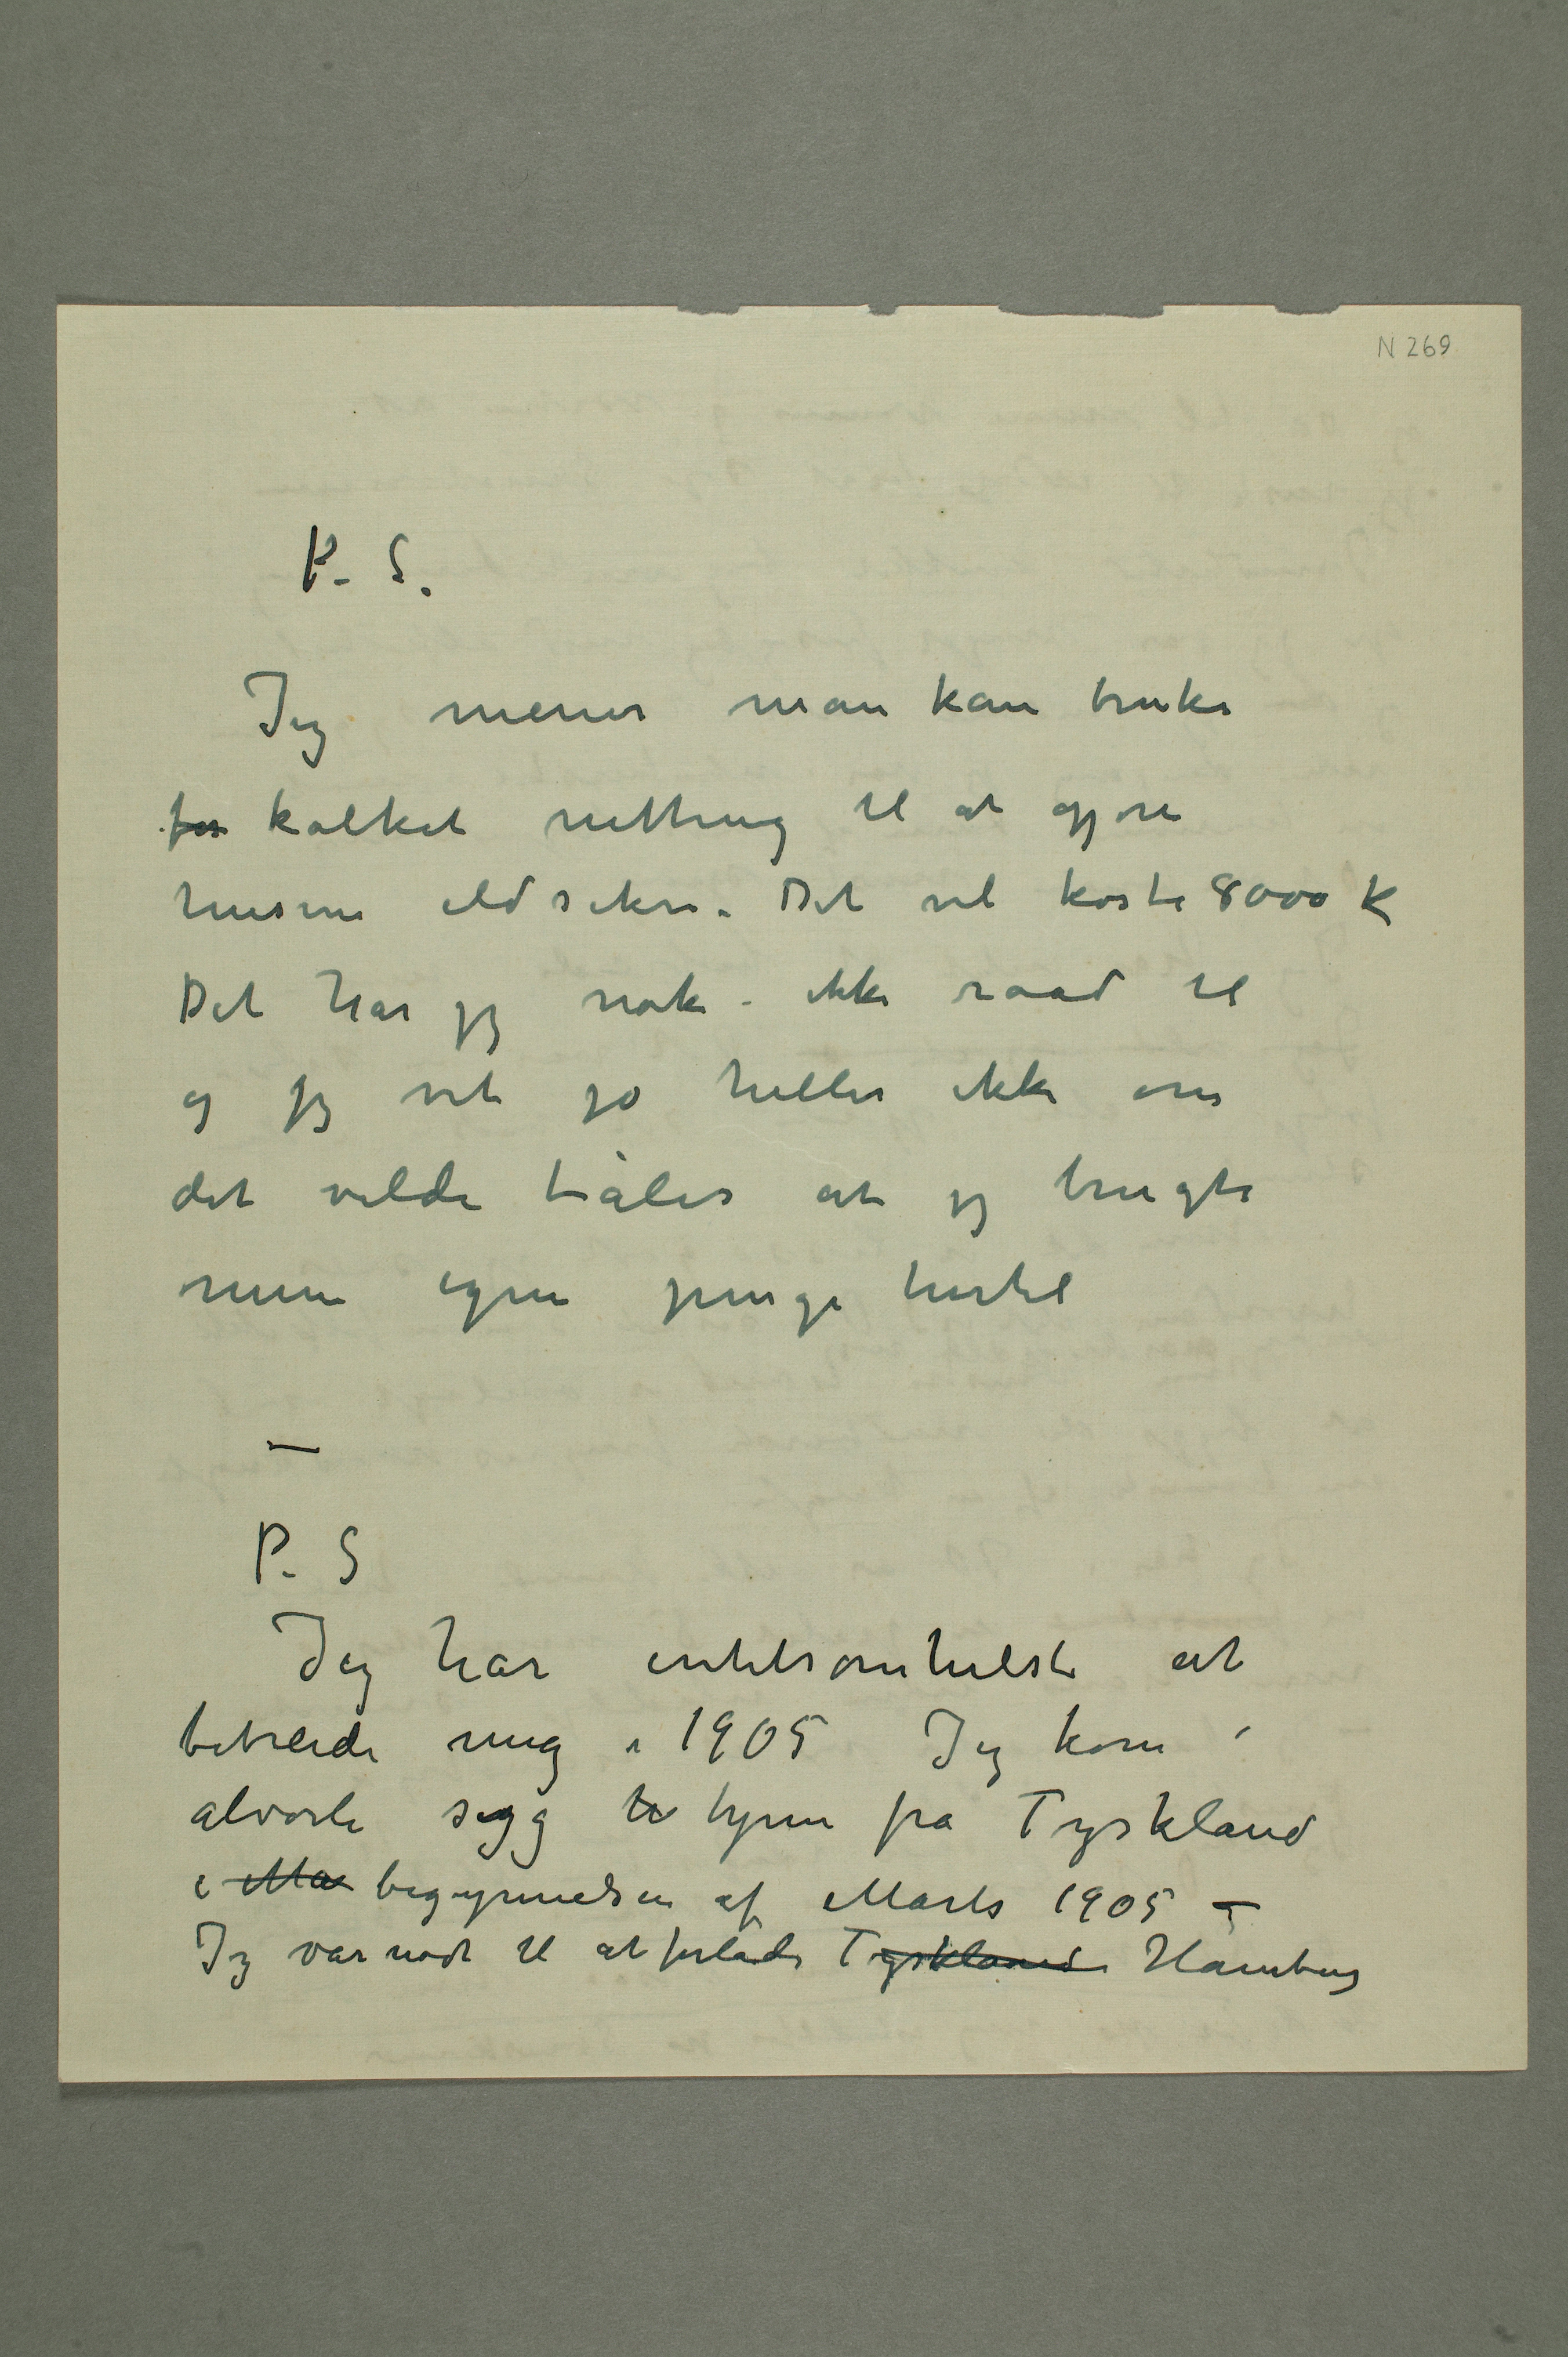 N 269
P. S.
Jeg mener man kan bruke
for kalket netting til at gjøre
husene ildsikre. Det vil koste 8000 K
Det har jeg nok ikke raad til
og jeg vet jo heller ikke om
det vilde tåles at jeg brugte
mine egne penge hertil
—
P. S
Jeg har intetsomhelst at
bebreide mig i 1905 Jeg kom
alvorlig sygg hjem fra Tyskland
i Ma begynnelsen af Marts 1905 –
Jeg var nødt til at forlade Tyskland Hamburg